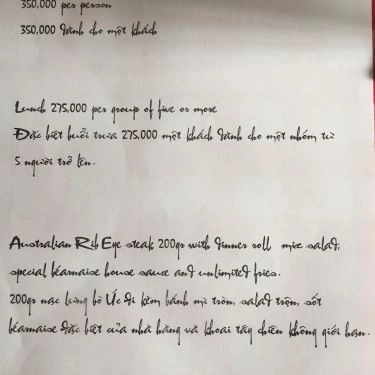 350,000 per person
350,000 dành cho một khách
Lunch 275,000 per group of five or more
Đặc biệt buổi trưa 275,000 một khách dành cho một nhóm từ
5 người trở lên.
Australian Rib Eye steak 200gr with dinner roll, mix salad,
special béarnaise house sauce and unlimited fries.
200gr nạc lưng bò Úc đi kèm bánh mì tròn, salad trộn, sốt
béarnaise đặc biệt của nhà hàng và khoai tây chiên không giới hạn.